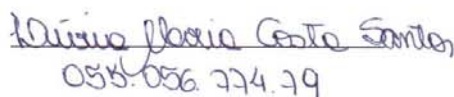 Maria Costa Santos
055.056.774.79